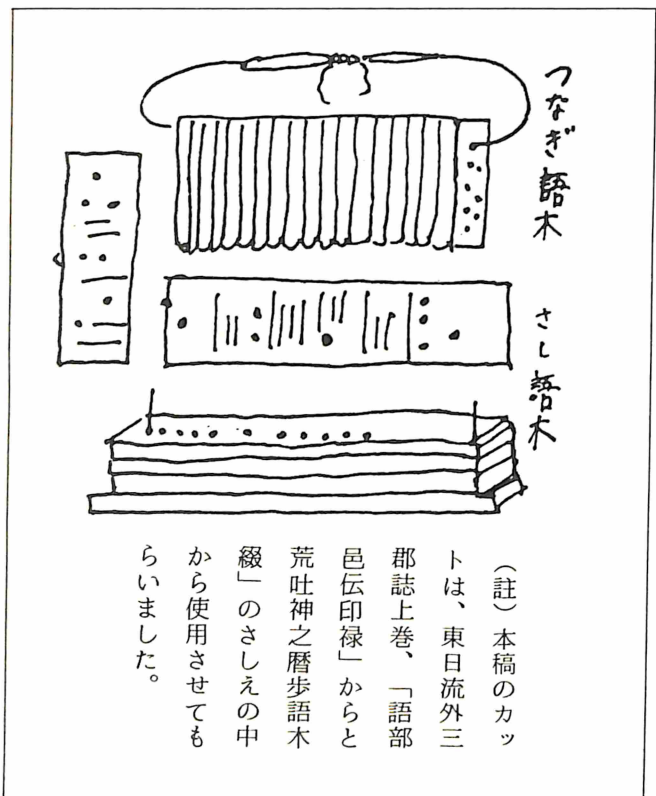 つなぎ語木
さし語木
(註)本稿のカッ
トは、東日流外三
郡誌上巻、「語部
邑伝印禄」からと
荒吐神之暦歩語木
綴」のさしえの中
から使用させても
らいました。